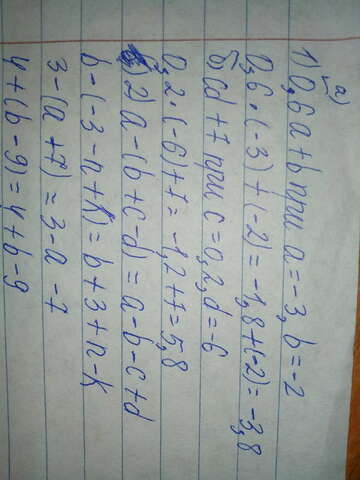 а)
1) 0,6a + b при a = -3, b = -2
0,6 · (-3) + (-2) = -1,8 + (-2) = -3,8
б) cd + 7 при c = 0,2, d = -6
0,2 · (-6) + 7 = -1,2 + 7 = 5,8
2) a - (b + c - d) = a - b - c + d
b - (-3 - n + k) = b + 3 + n - k
3 - (a + 7) = 3 - a - 7
4 + (b - 9) = 4 + b - 9